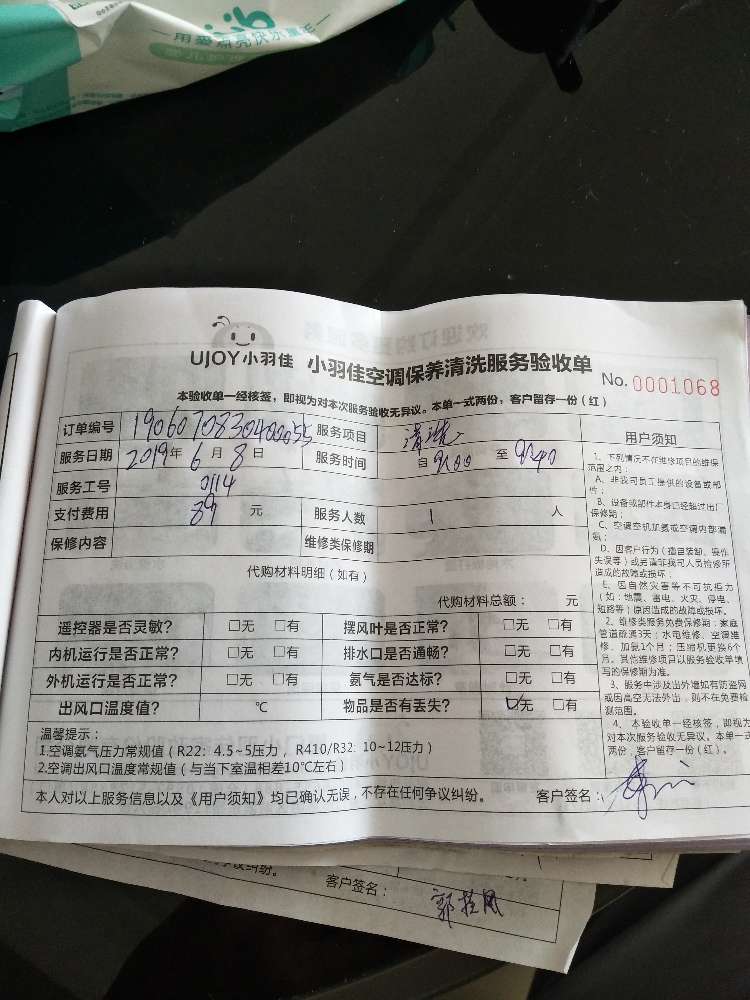 用爱点亮快乐童年
UJOY小羽佳 小羽佳空调保养清洗服务验收单
No. 0001068
本验收单一经核签，即视为对本次服务验收无异议。本单一式两份，客户留存一份（红）
订单编号 1906070830400055 服务项目 清洗
服务日期 2019年6月8日 服务时间 自 9:00 至 9:40
服务工号 0114
支付费用 89 元 服务人数 1 人
保修内容 维修类保修期
代购材料明细（如有）
代购材料总额： 元
遥控器是否灵敏？ □无 □有 摆风叶是否正常？ □无 □有
内机运行是否正常？ □无 □有 排水口是否通畅？ □无 □有
外机运行是否正常？ □无 □有 氨气是否达标？ □无 □有
出风口温度值？ ℃ 物品是否有丢失？ ☑无 □有
温馨提示：
1.空调氨气压力常规值（R22: 4.5~5压力， R410/R32: 10~12压力）
2.空调出风口温度常规值（与当下室温相差10℃左右）
本人对以上服务信息以及《用户须知》均已确认无误，不存在任何争议纠纷。 客户签名：
用户须知
1、下列情况不在维修项目的维保
范围之内：
A、非我司员工提供的设备或部
件；
B、设备或部件本身已经超过出厂
保修期；
C、空调空机加氨或空调内部漏
氨；
D、因客户行为（擅自装卸、操作
失误等）或另请非我司人员检修所
造成的故障或损坏；
E、因自然灾害等不可抗拒力
（如：地震、雷电、火灾、停电、
短路等）原因造成的故障或损坏。
2、维修类服务免费保修期：家庭
管道疏通3天；水电维修、空调维
修、加氨1个月；压缩机更换6个
月。其他维修项目以服务验收单填
写的保修期为准。
3、服务中涉及出外墙如有防盗网
或因高空无法外出，则不在免费检
测范围。
4、本验收单一经核签，即视为
对本次服务验收无异议。本单一式
两份，客户留存一份（红）。
纠纷。 客户签名： 郭桂凤